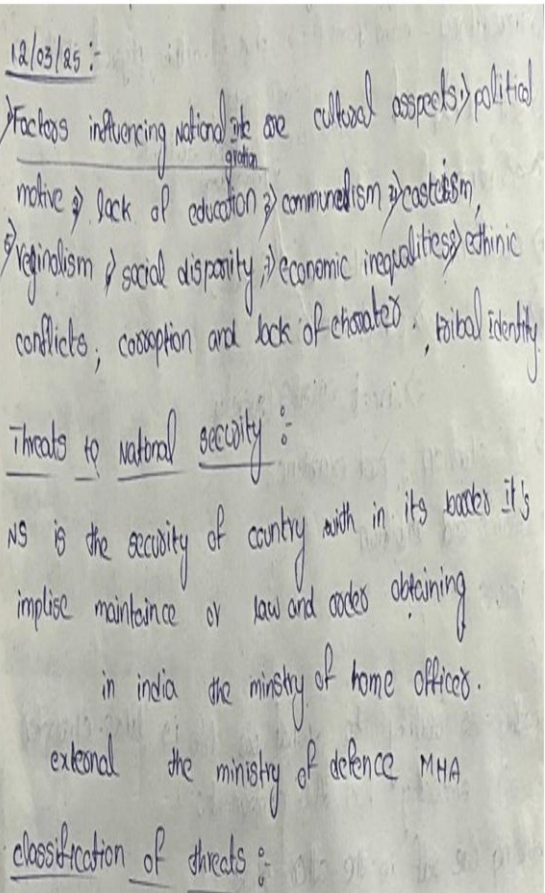 12/03/25 :-
Factors influencing National inte are cultural asspects, political
gration
motive, lack of education, communalism, casteism,
reginolism, social disparity, economic inequalities, ethinic
conflicts, corroption and lack of charater, tribal identity
Threats to National security :-
NS is the security of country with in its border it's
implise maintaince or law and order obtaining
in india the minstry of home officer.
external the ministry of defence MHA
classification of threats :-